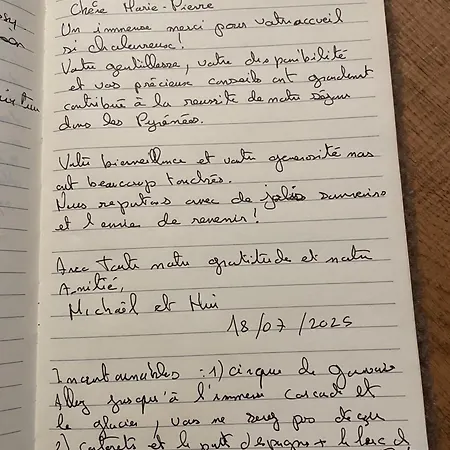 Chère Marie-Pierre
Un immense merci pour votre accueil
si chaleureux!
Votre gentillesse, votre disponibilité
et vos précieux conseils ont grandement
contribué à la réussite de notre séjour
dans les Pyrénées.
Votre bienveillance et votre générosité nous
ont beaucoup touchés.
Nous repartons avec de jolis souvenirs
et l'envie de revenir!
Avec toute notre gratitude et notre
Amitié,
Michaël et
18/07/2025
Incontournables : 1) cirque de gavarnie
Allez jusqu'à l'immense cascade et
le glacier, vous ne serez pas déçu
2) cauterets et le pont d'espagne + le lac d